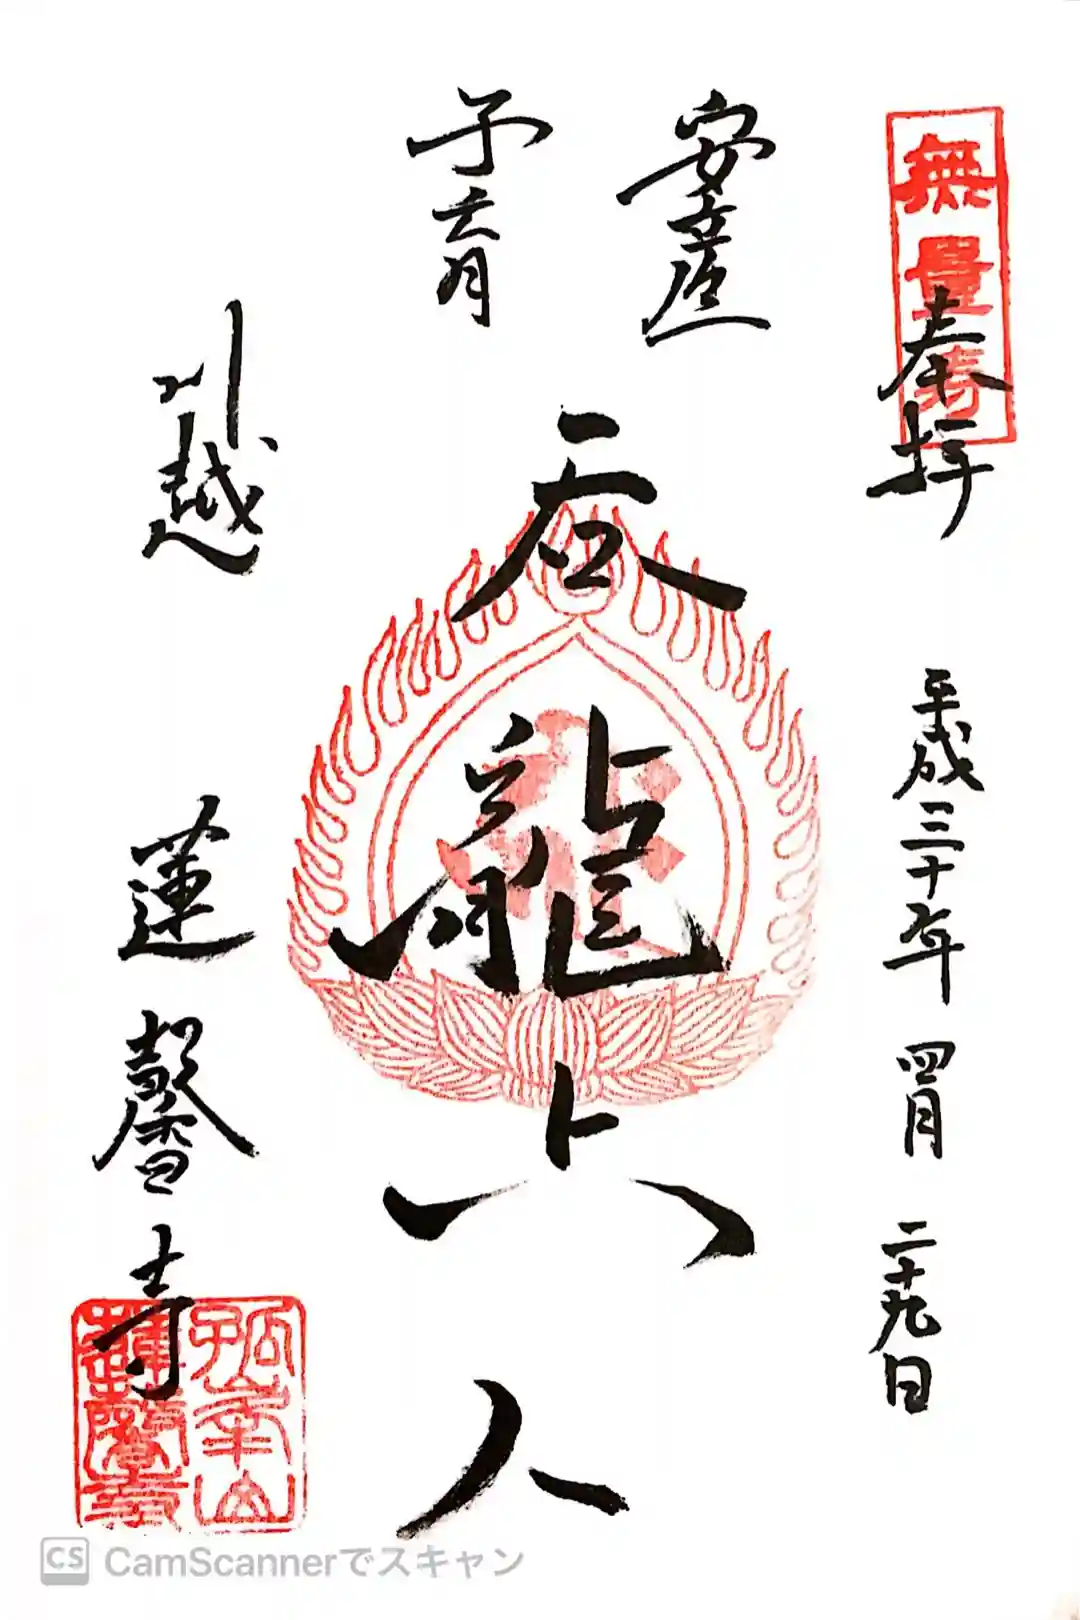 無量寿
奉拝 平成三十年 四月 二十九日
安産
子育
呑龍上人
川越 蓮馨寺
孤峯山
蓮馨寺
CS CamScannerでスキャン